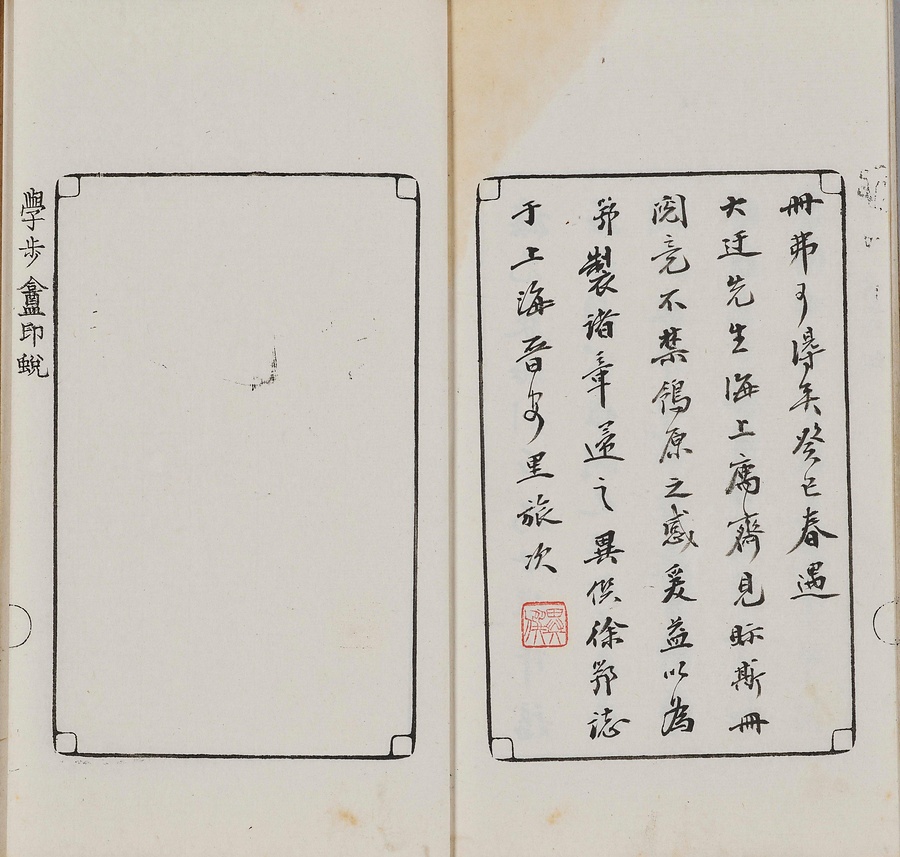 冊弗可得矣癸巳春遇
大迂先生海上寓齋見眎斯冊
閱竟不禁鴒原之感爰益以爲
鄂製諸章還之異傁徐鄂誌
于上海晉安里旅次
學步盦印蛻